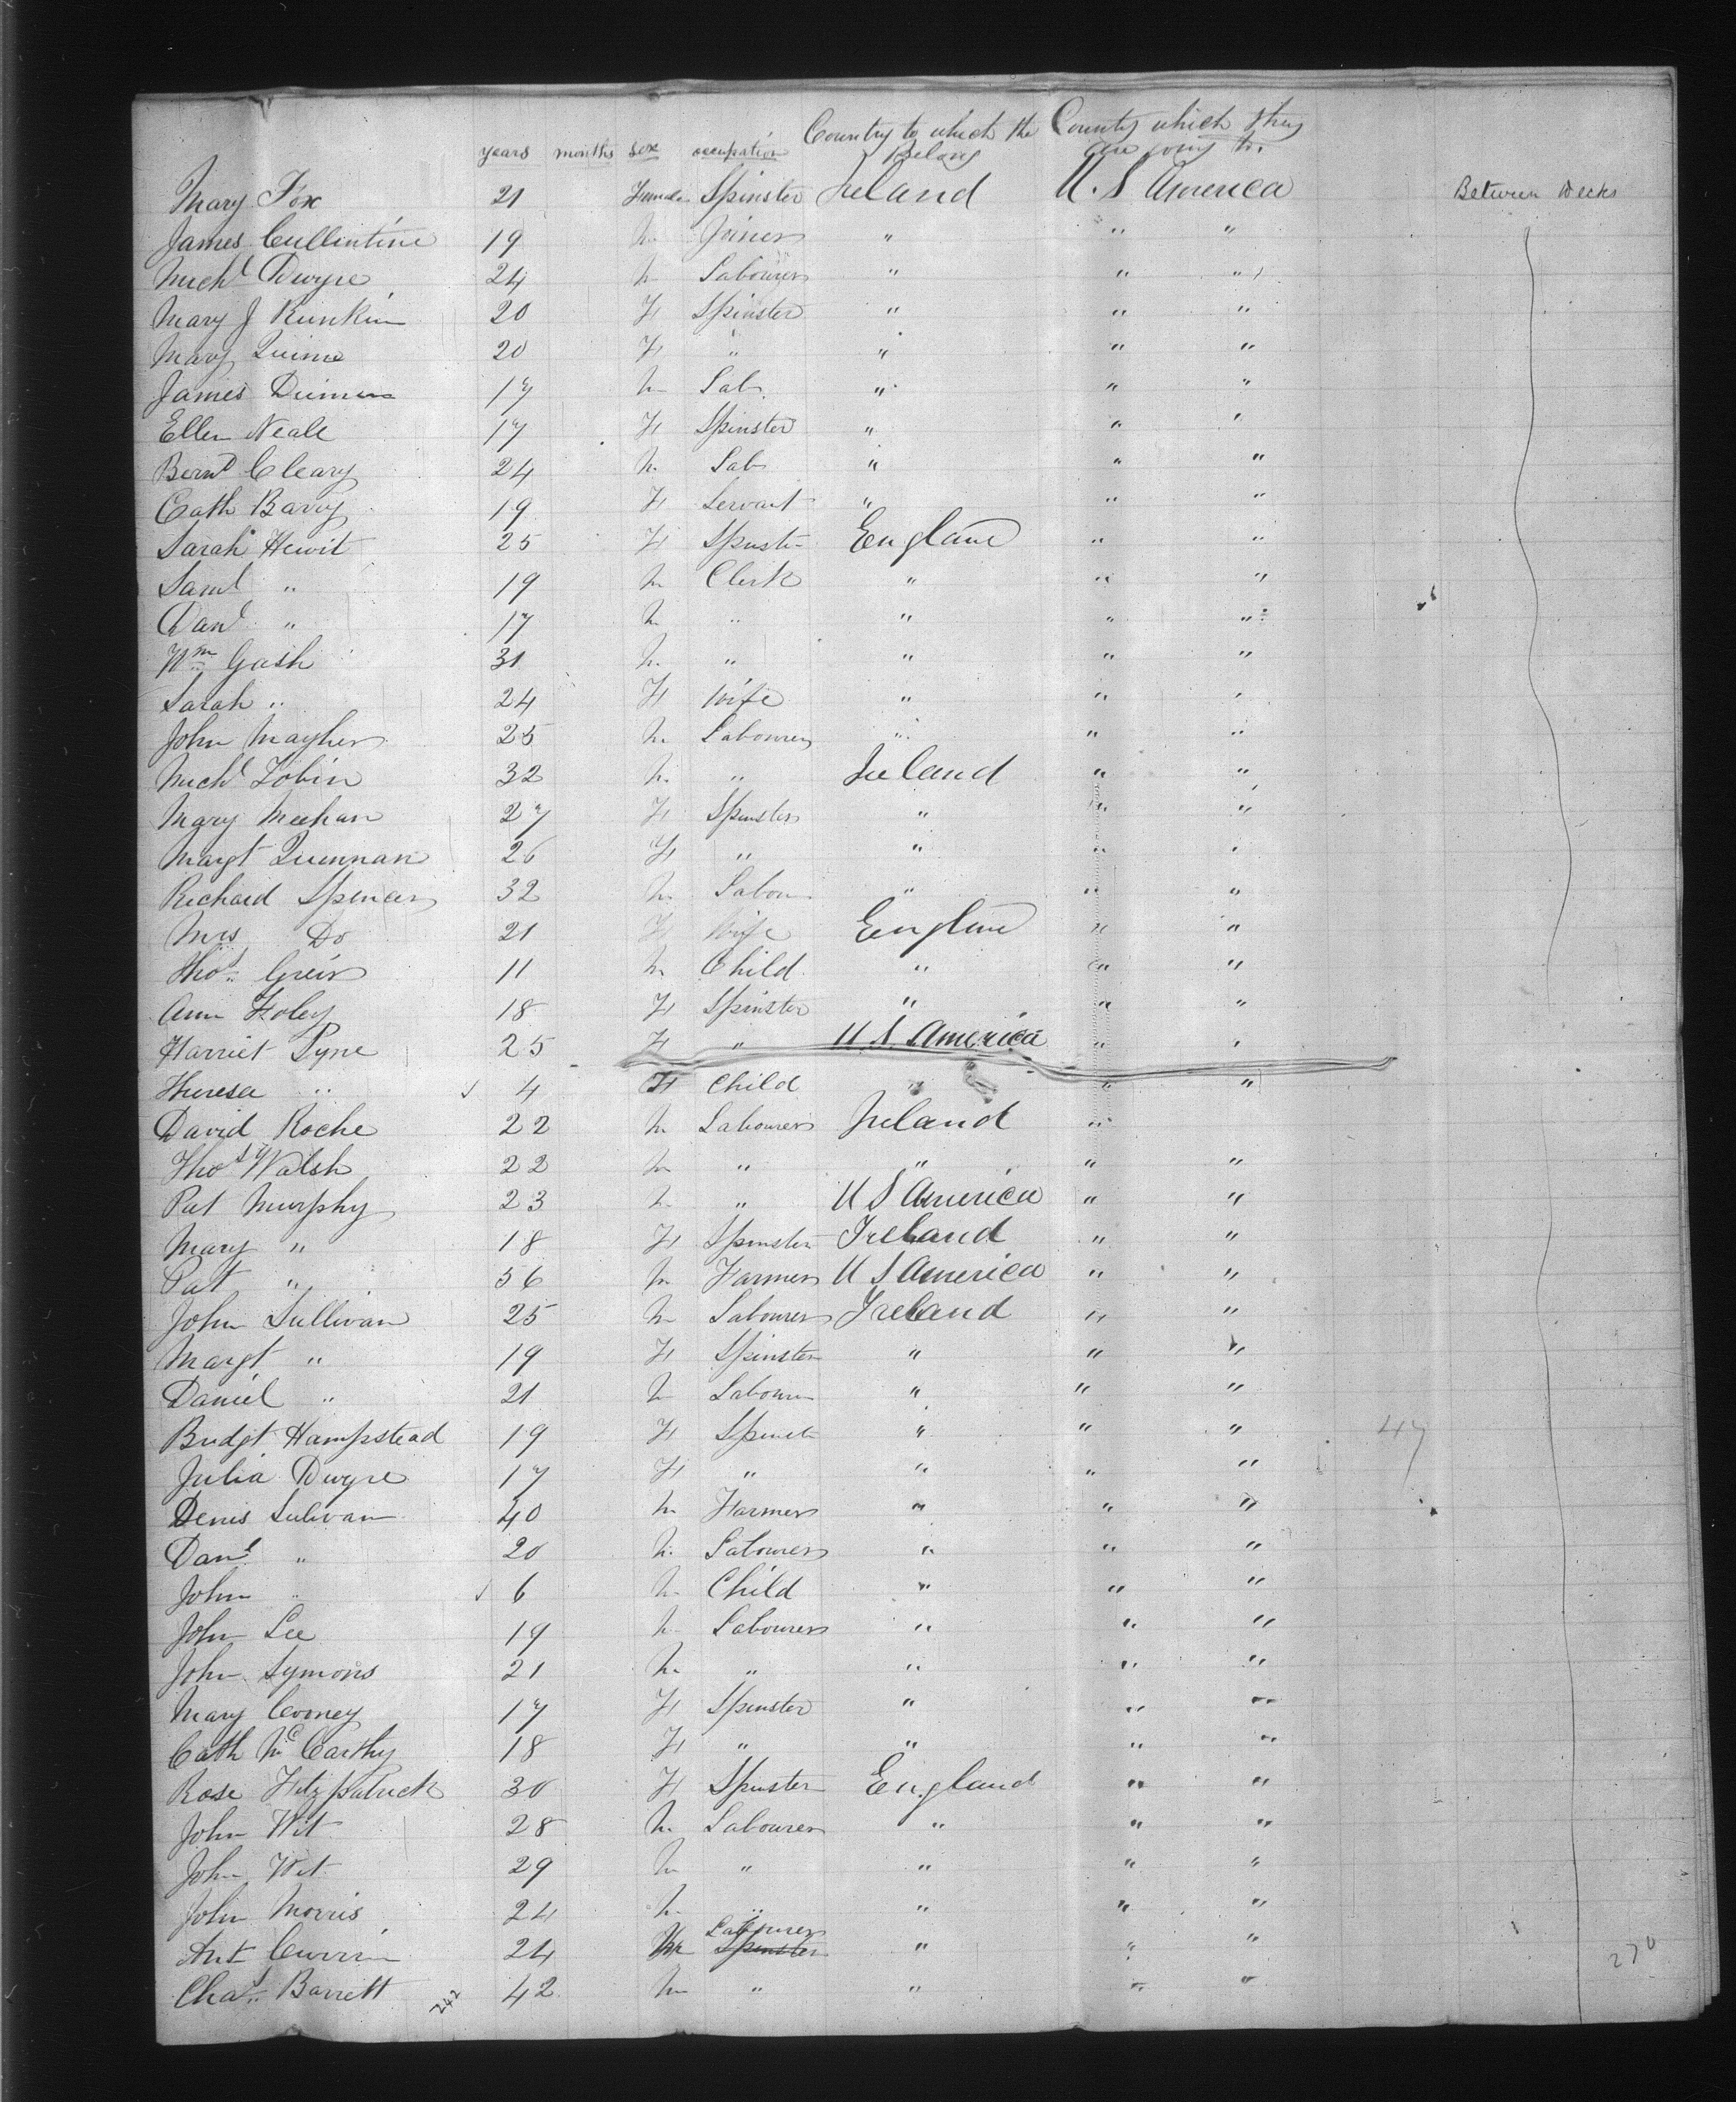 years months sex occupation Country to which the Belong Country which they are going to.
Mary Fox 21 Female Spinster Ireland U. S America Between Decks
James Cullintine 19 M Joiner " " "
Michl Dwyre 24 M Labourer " " "
Mary J 20 F Spinster " " "
Mary 20 F " " " "
James 17 M Lab. " " "
Ellen Neale 17 F Spinster " " "
Bernd Cleary 24 M Lab " " "
Cath Barry 19 F Servant " " "
Sarah Hewit 25 F Spinster England " "
Saml " 19 M Clerk " " "
Danl " 17 M " " " "
Wm Gash 31 M " " " "
Sarah " 24 F Wife " " "
John Mayher 25 M Labourer " " "
Michl Tobin 32 M " Ireland " "
Mary Meehan 27 F Spinster " " "
Margt Quennan 26 F " " " "
Richard Spencer 32 M Labour " " "
Mrs Do 21 F Wife England " "
Thos Greir 11 M Child " " "
Ann Foley 18 F Spinster " " "
Harriet Pyne 25 F " U S. America " "
Theresa " 4 F Child " " "
David Roche 22 M Labourer Ireland "
Thos Walsh 22 M " " " "
Pat Murphy 23 M " U S America " "
Mary " 18 F Spinster Ireland " "
Pat " 56 M Farmer U S America " "
John Sullivan 25 M Labourer Ireland " "
Margt " 19 F Spinster " " "
Daniel " 21 M Labourer " " "
Bridgt Hampstead 19 F Spinst " " " 47
Julia Dwyre 17 F " " " "
Denis Sulivan 40 M Farmer " " "
Danl " 20 M Labourer " " "
John " 6 M Child " " "
John Lee 19 M Labourer " " "
John Symons 21 M " " " "
Mary Cooney 17 F Spinster " " "
Cath McCarthy 18 F " " " "
Rose Fitzpatrick 30 F Spinster England " "
John Wit 28 M Labourer " " "
John Wit 29 M " " " "
John Morris 24 M " " " "
Ant Currin 24 M Labourer Spinster " " "
Chas Barrett 242 42 M " " " "
270